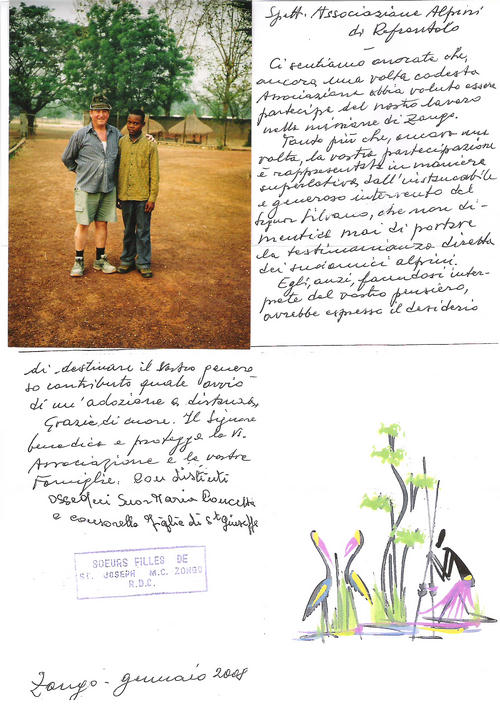 Spett. Associazione Alpini
di Refrontolo
Ci sentiamo onorate che,
ancora una volta codesta
Associazione abbia voluto essere
partecipe del nostro lavoro
nella missione di Zongo.
Tanto più che, ancora una
volta, la vostra partecipazione
è rappresentata in maniera
superlativa, dall'instancabile
e generoso intervento del
Signor Silvano, che non di-
mentica mai di portare
la testimonianza diretta
dei suoi amici alpini.
Egli, anzi, facendosi inter-
prete del vostro pensiero,
avrebbe espresso il desiderio
di destinare il Vostro genero
so contributo quale avvio
di un'adozione a distanza,
Grazie di cuore. Il Signore
benedica e protegga la V/.
Associazione e le vostre
Famiglie. Con distinti
ossequi Suor Maria Concetta
e consorelle Figlie di St Giuseppe
SOEURS FILLES DE
ST. JOSEPH M.C. ZONGO
R.D.C.
Zongo - gennaio 2008